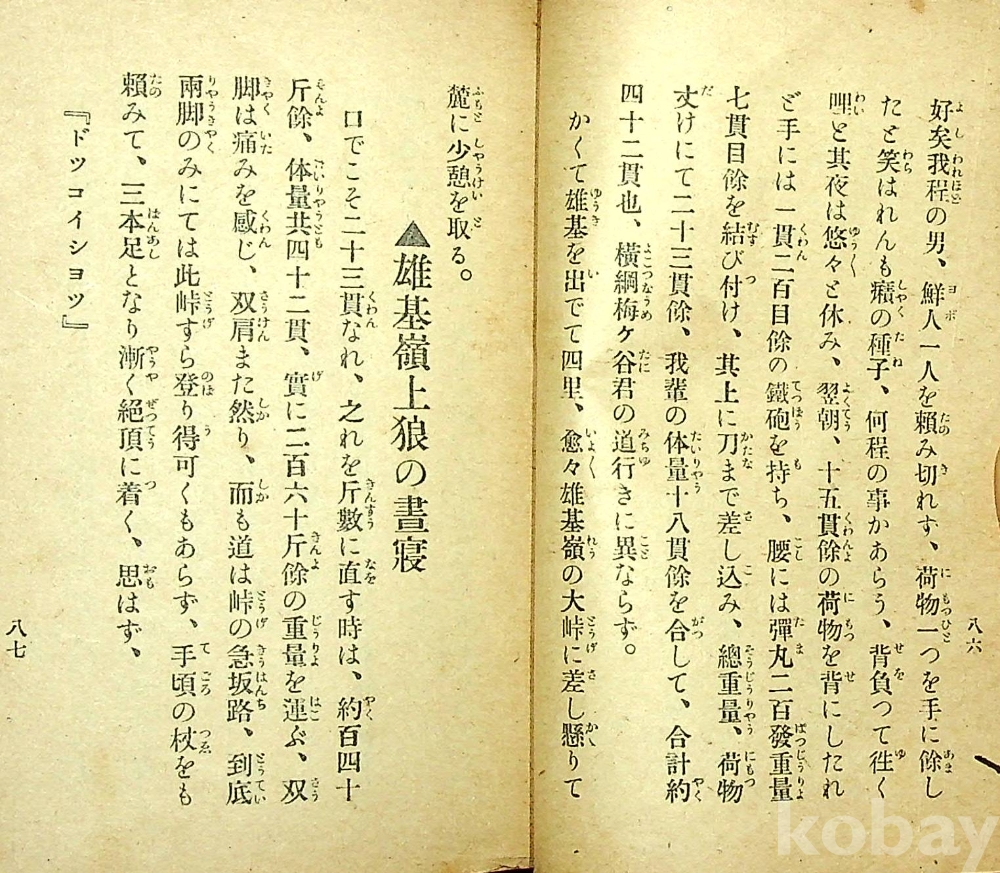 八六
好矣我程の男、鮮人一人を賴み切れず、荷物一つを手に餘し
たと笑はれんも癪の種子、何程の事かあらう、背負つて徃く
と其夜は悠々と休み、翌朝、十五貫餘の荷物を背にしたれ
ど手には一貫二百目餘の鐵砲を持ち、腰には彈丸二百發重量
七貫目餘を結び付け、其上に刀まで差し込み、總重量、荷物
丈けにて二十三貫餘、我輩の体量十八貫餘を合して、合計約
四十二貫也、橫綱梅ヶ谷君の道行きに異ならず。
かくて雄基を出でて四里、愈々雄基嶺の大峠に差し懸りて
麓に少憩を取る。
▲雄基嶺上狼の晝寢
口でこそ二十三貫なれ、之れを斤數に直す時は、約百四十
斤餘、体量共四十二貫、實に二百六十斤餘の重量を運ぶ、双
脚は痛みを感じ、双肩また然り、而も道は峠の急坂路、到底
兩脚のみにては此峠すら登り得可くもあらず、手頃の杖をも
賴みて、三本足となり漸く絕頂に着く、思はず、
『ドツコイシヨツ』
八七
kobay